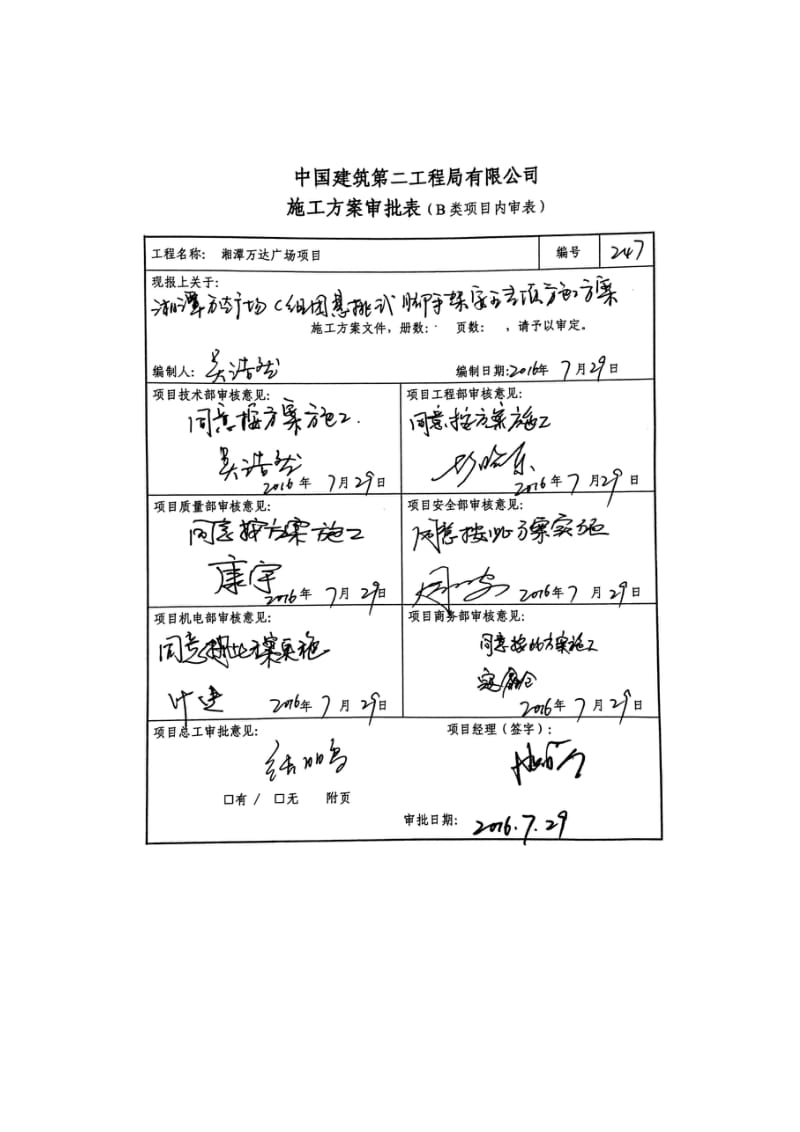 中国建筑第二工程局有限公司
施工方案审批表（B类项目内审表）
工程名称： 湘潭万达广场项目 编号 247
现报上关于：
湘潭万达广场C组团悬挑式脚手架安全专项施工方案
施工方案文件，册数： 页数： ，请予以审定。
编制人：吴浩然 编制日期：2016年7月29日
项目技术部审核意见： 项目工程部审核意见：
同意按方案施工. 同意按方案施工
吴浩然
2016年7月29日 2016年7月29日
项目质量部审核意见： 项目安全部审核意见：
同意按方案施工 同意按此方案实施
康宇
2016年7月29日 2016年7月29日
项目机电部审核意见： 项目商务部审核意见：
同意按此方案实施 同意按此方案施工
叶建
2016年7月29日 2016年7月29日
项目总工审批意见： 项目经理（签字）：
□有 / □无 附页
审批日期： 2016.7.29